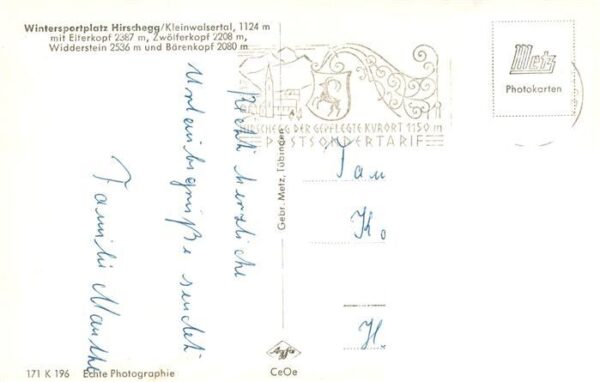 Wintersportplatz Hirschegg/Kleinwalsertal, 1124 m
mit Elferkopf 2387 m, Zwölferkopf 2208 m,
Widderstein 2536 m und Bärenkopf 2080 m
HIRSCHEGG DER GEPFLEGTE KURORT 1150 m
POSTSONDERTARIF
Metz
Photokarten
Recht herzliche
Urlaubsgrüße sendet
Familie
Gebr. Metz, Tübingen
Fam
Ko
H.
171 K 196 Echte Photographie
Agfa
CeOe